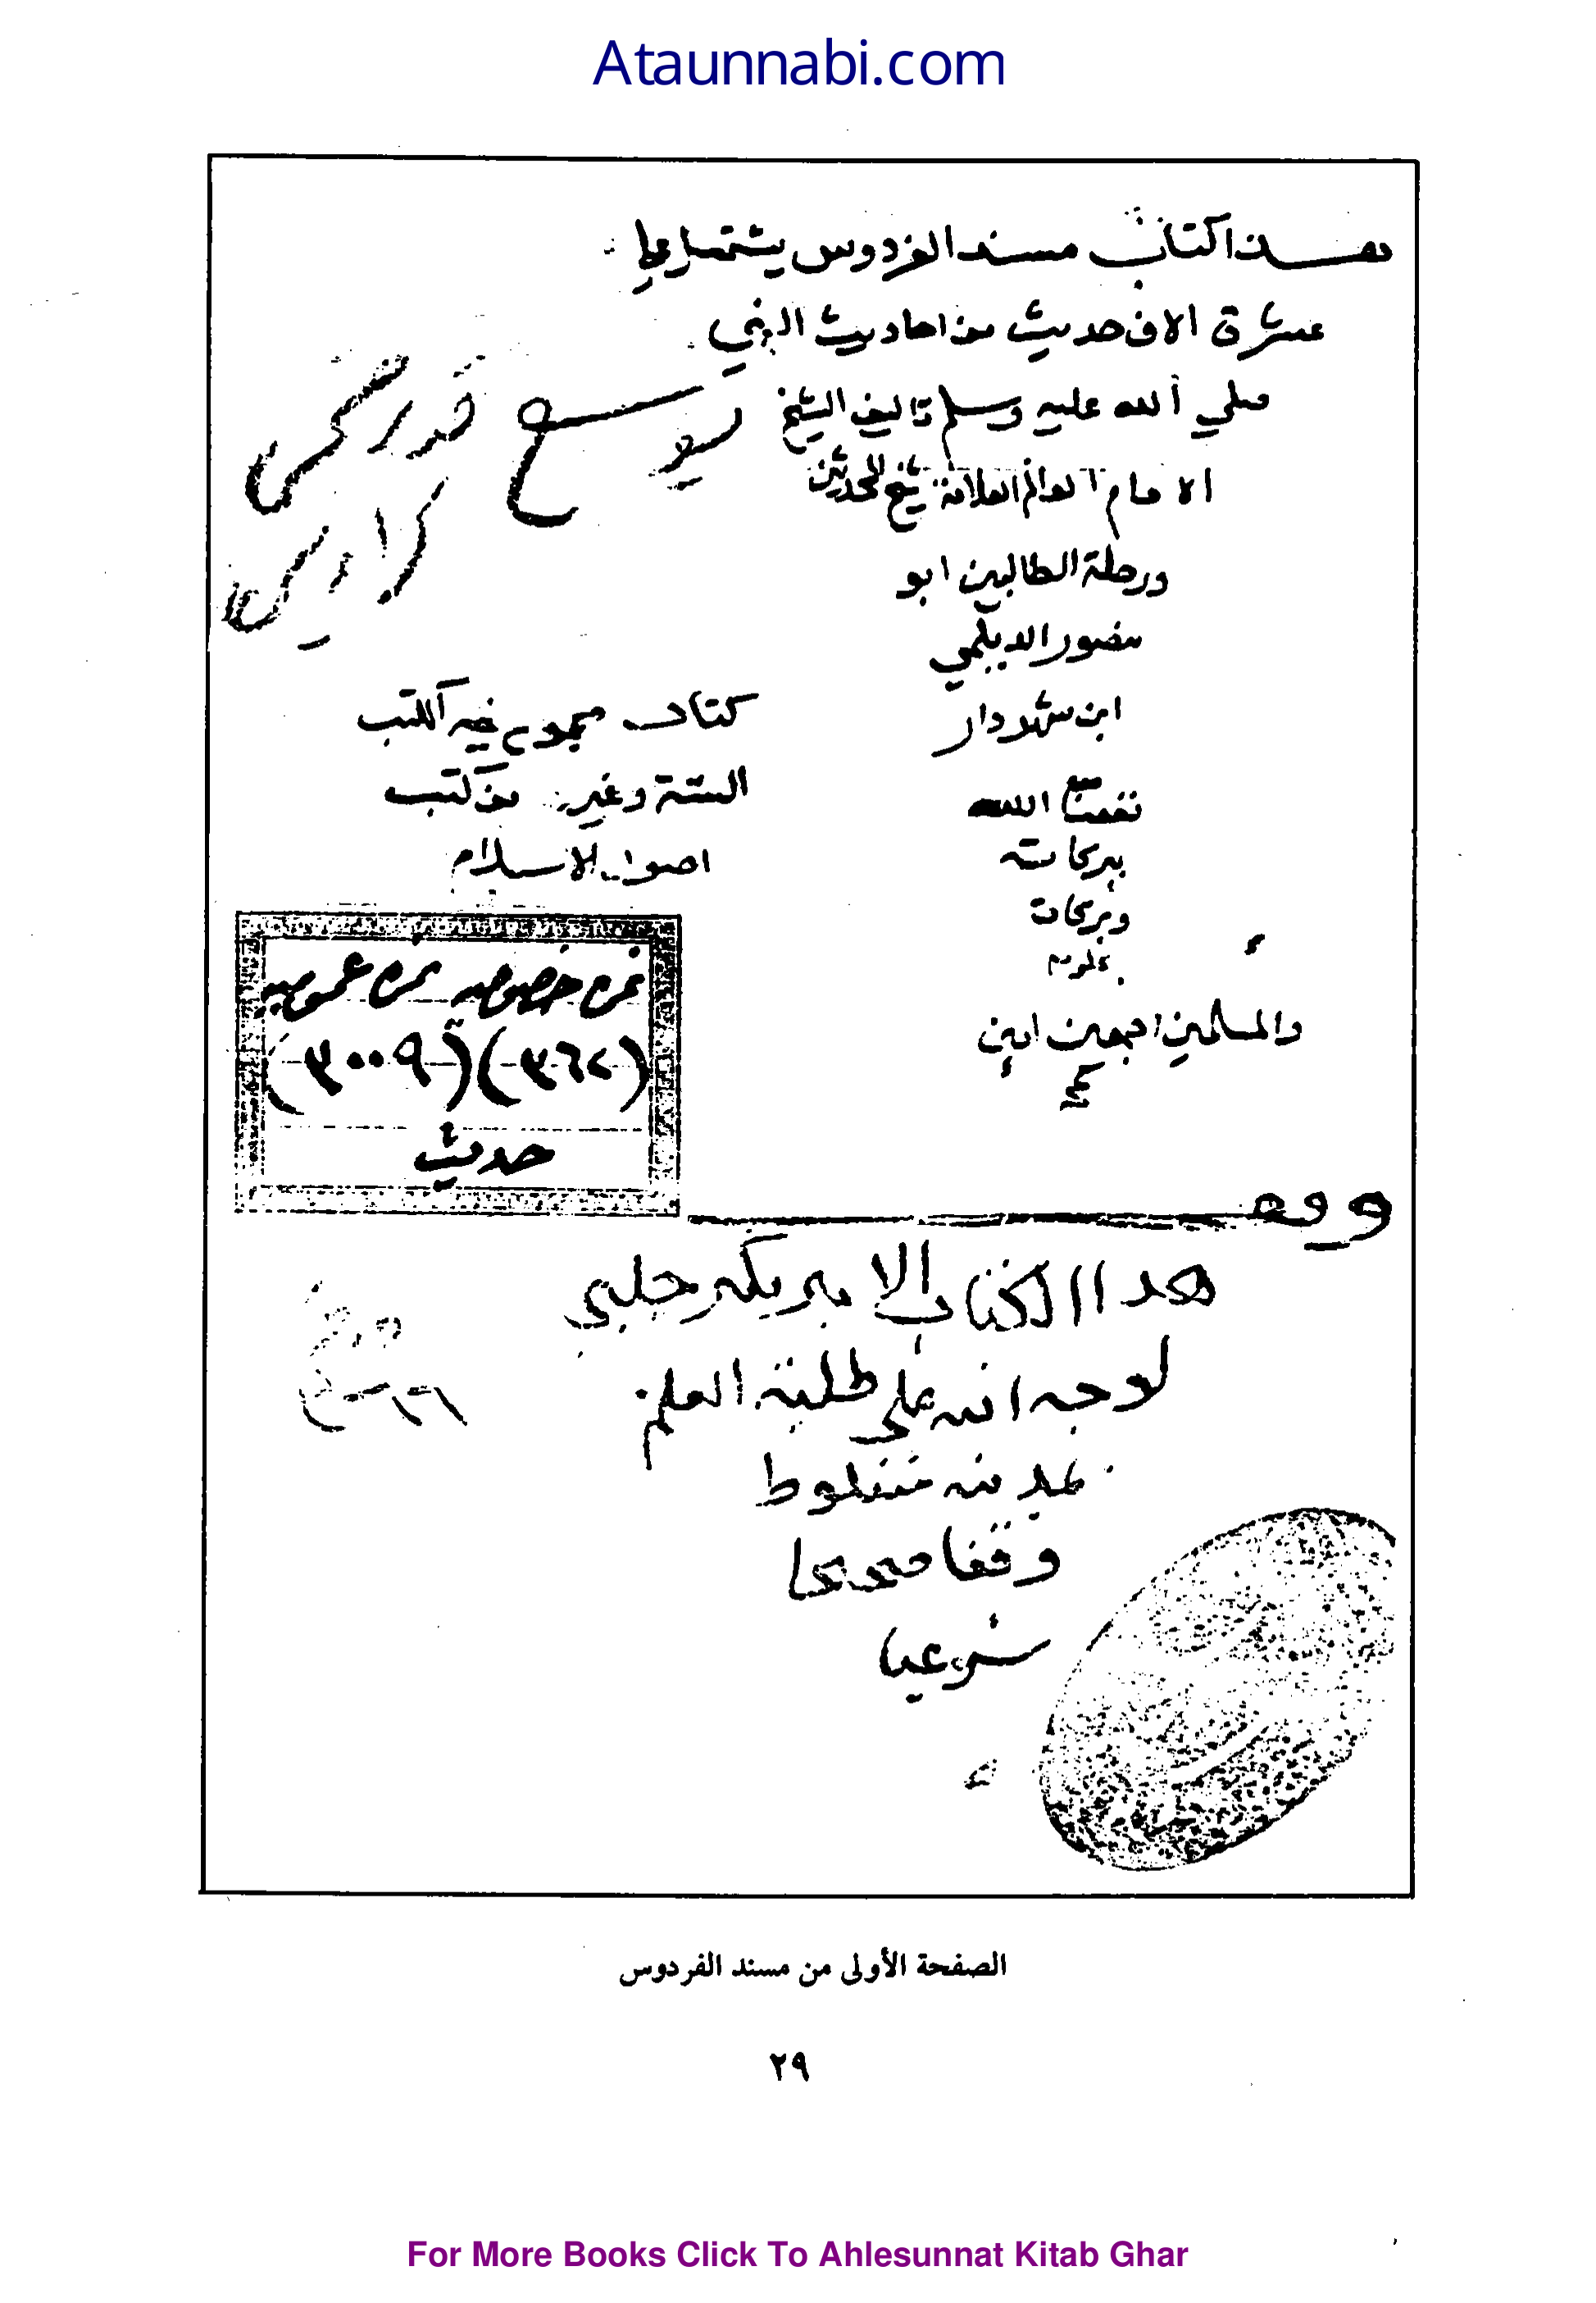 Ataunnabi.com
هذا كتاب مسند الفردوس يشتمل على
عشرة الاف حديث من احاديث النبي
صلي الله عليه وسلم تاليف الشيخ
الامام العالم العلامة شيخ المحدثين
ورحلة الطالبين ابو
منصور الديلمي
ابن شهردار
نفعنا الله
ببركاته
وبركات
علومه
والمسلمين اجمعين امين
كتاب مجموع فيه الكتب
الستة وغيره من كتب
اصول الاسلام
نمره خصوصيه نمره عموميه
(٣٦٢) (٣٠٠٩)
حديث
وقف
هدا الكتاب الامير جلبي
لوجه الله على طلبة العلم
بمدينه منفلوط
وقفا صحيحا
شرعيا
الصفحة الأولى من مسند الفردوس
٢٩
For More Books Click To Ahlesunnat Kitab Ghar